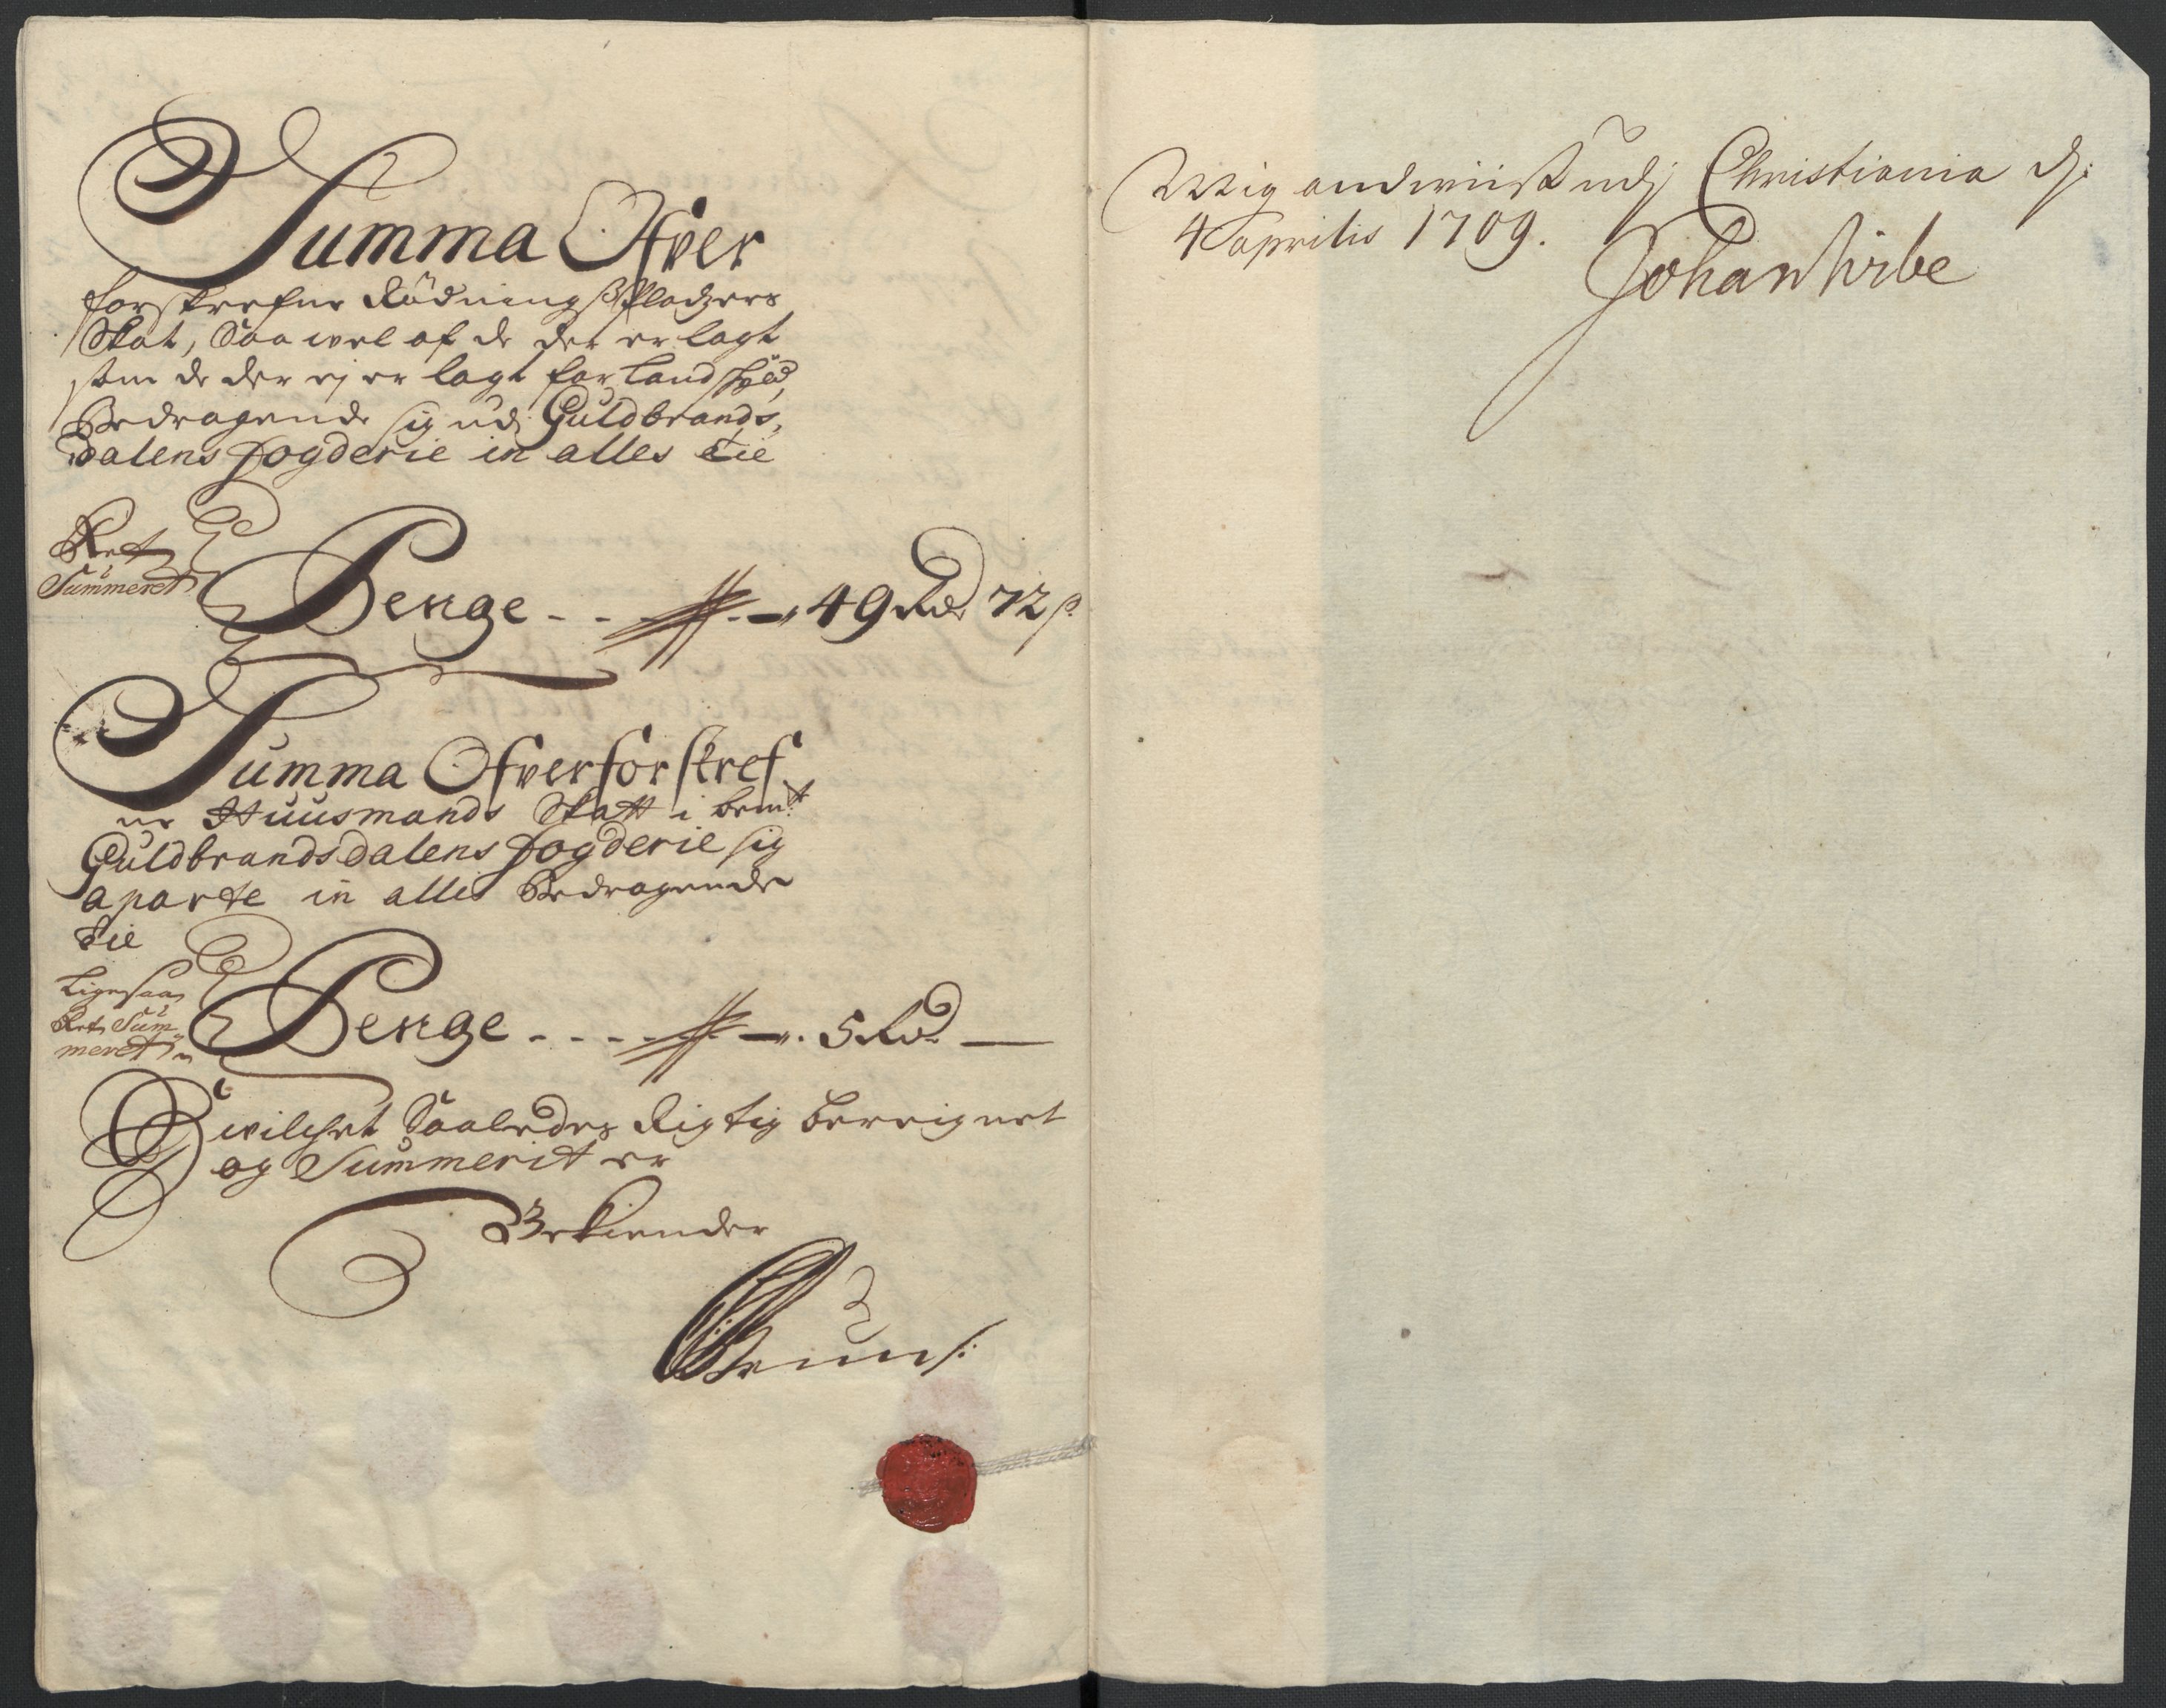 Summa Ofver
forskrefne Rødnings Pladzers
Skat, Saa wel af de der er lagt
som de der ej er lagt for Landskyld,
Bedragende sig udj Guldbrands-
dalens Fogderie in alles tie
Ret
Summeret
Penge - - - 49 Rd 72 s.
Summa Ofver forskref
ne Huusmands Skatt i bemt
Guldbrandsdalens Fogderie sig
aparte in alles Bedragende
tie
Ligesaa
Ret Sum
meret
Penge - - - - 5 Rd —
Hvilchet Saaledes Rigtig bereignet
og Summerit er
Bekiender
Wiig anviist udj Christiania d:
4 aprilis 1709.
Johan Wibe